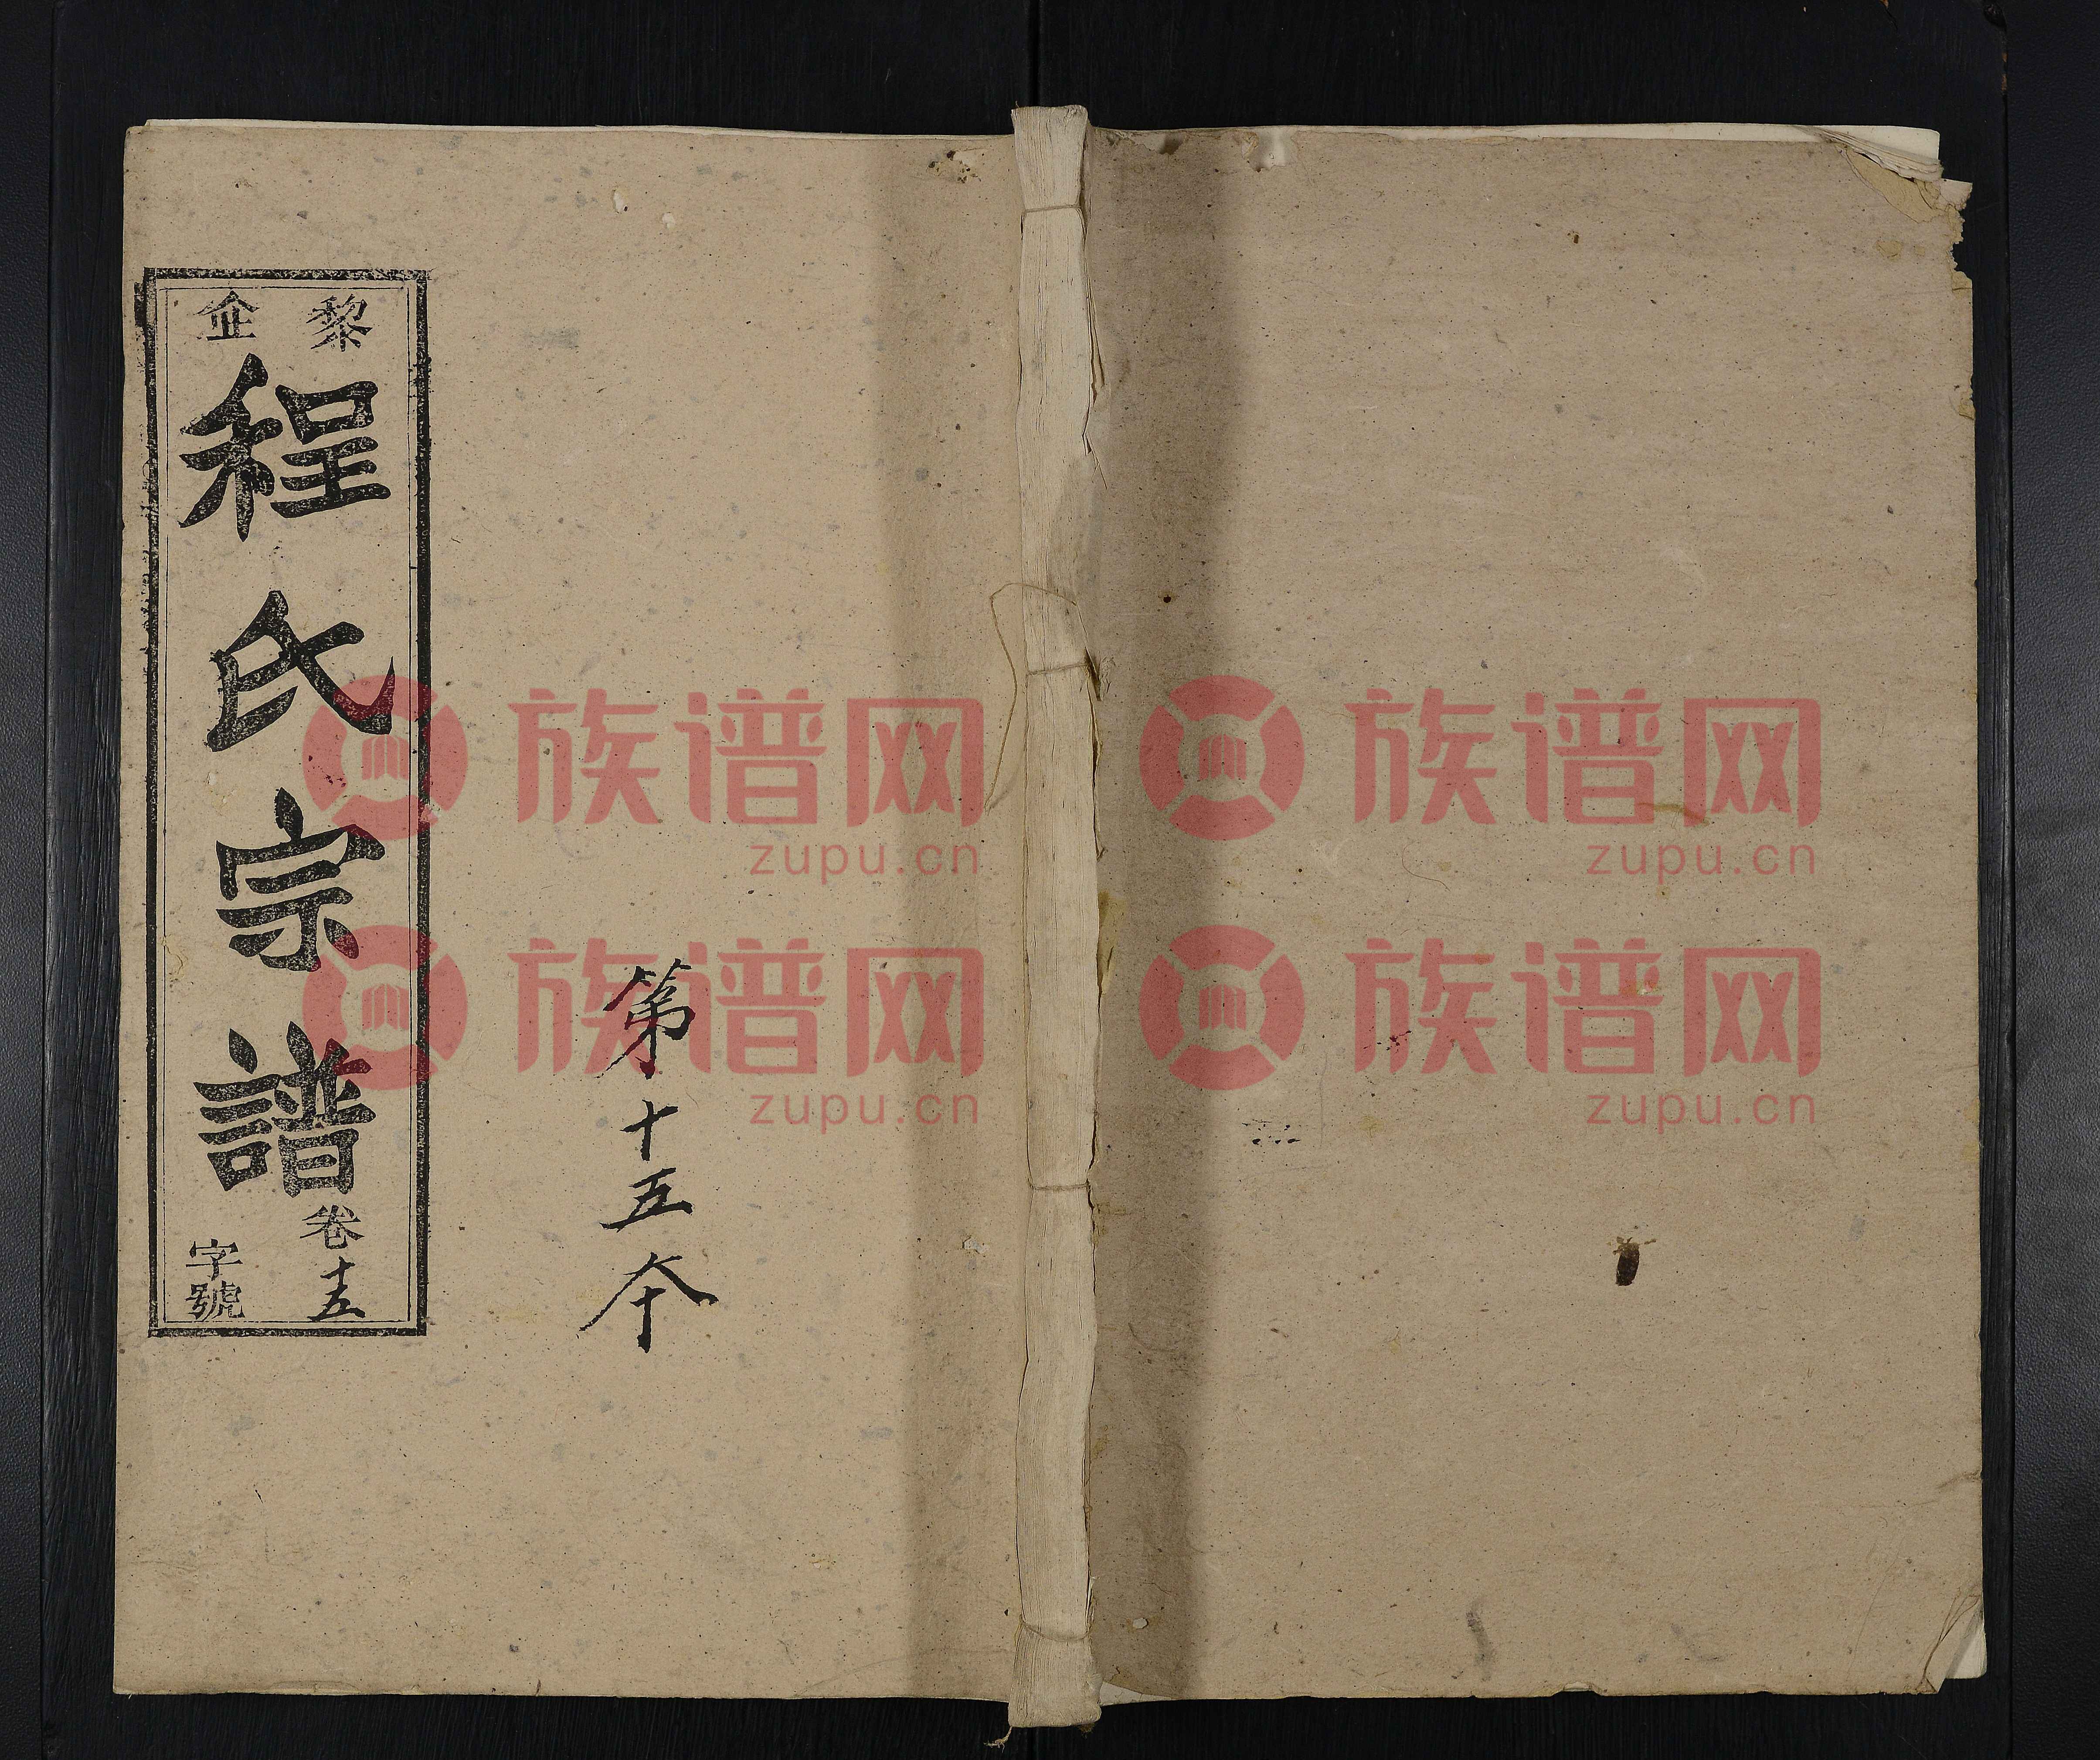 黎企
程氏宗譜
卷十五
字號
第十五本
族谱网 族谱网
zupu.cn zupu.cn
族谱网 族谱网
zupu.cn zupu.cn